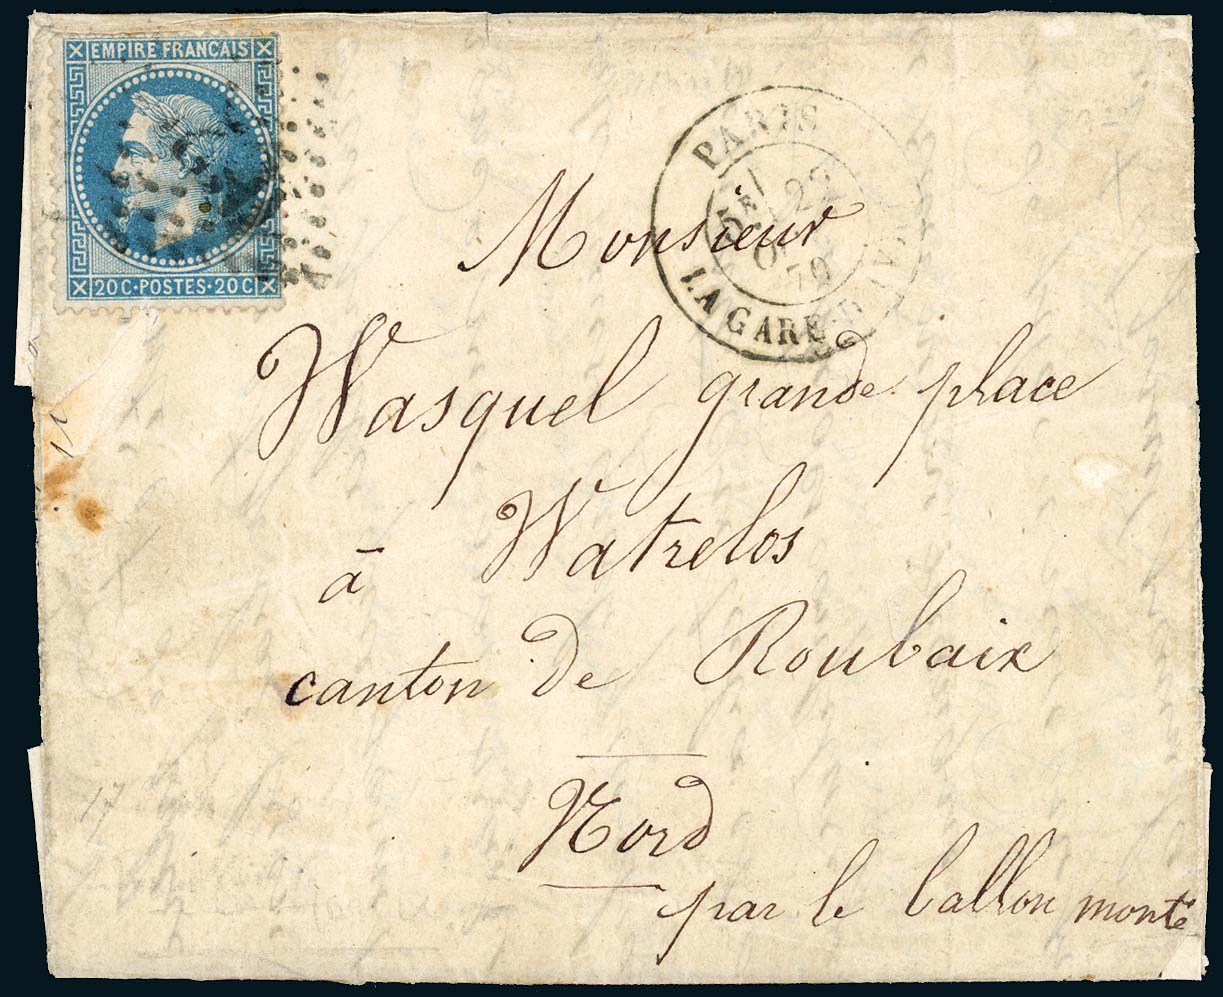 EMPIRE FRANÇAIS
20 C · POSTES · 20 C
PARIS
5E/
22
70
LA GARE
Monsieur
Wasquel grande place
à Watrelos
canton de Roubaix
Nord
par le ballon monté
17